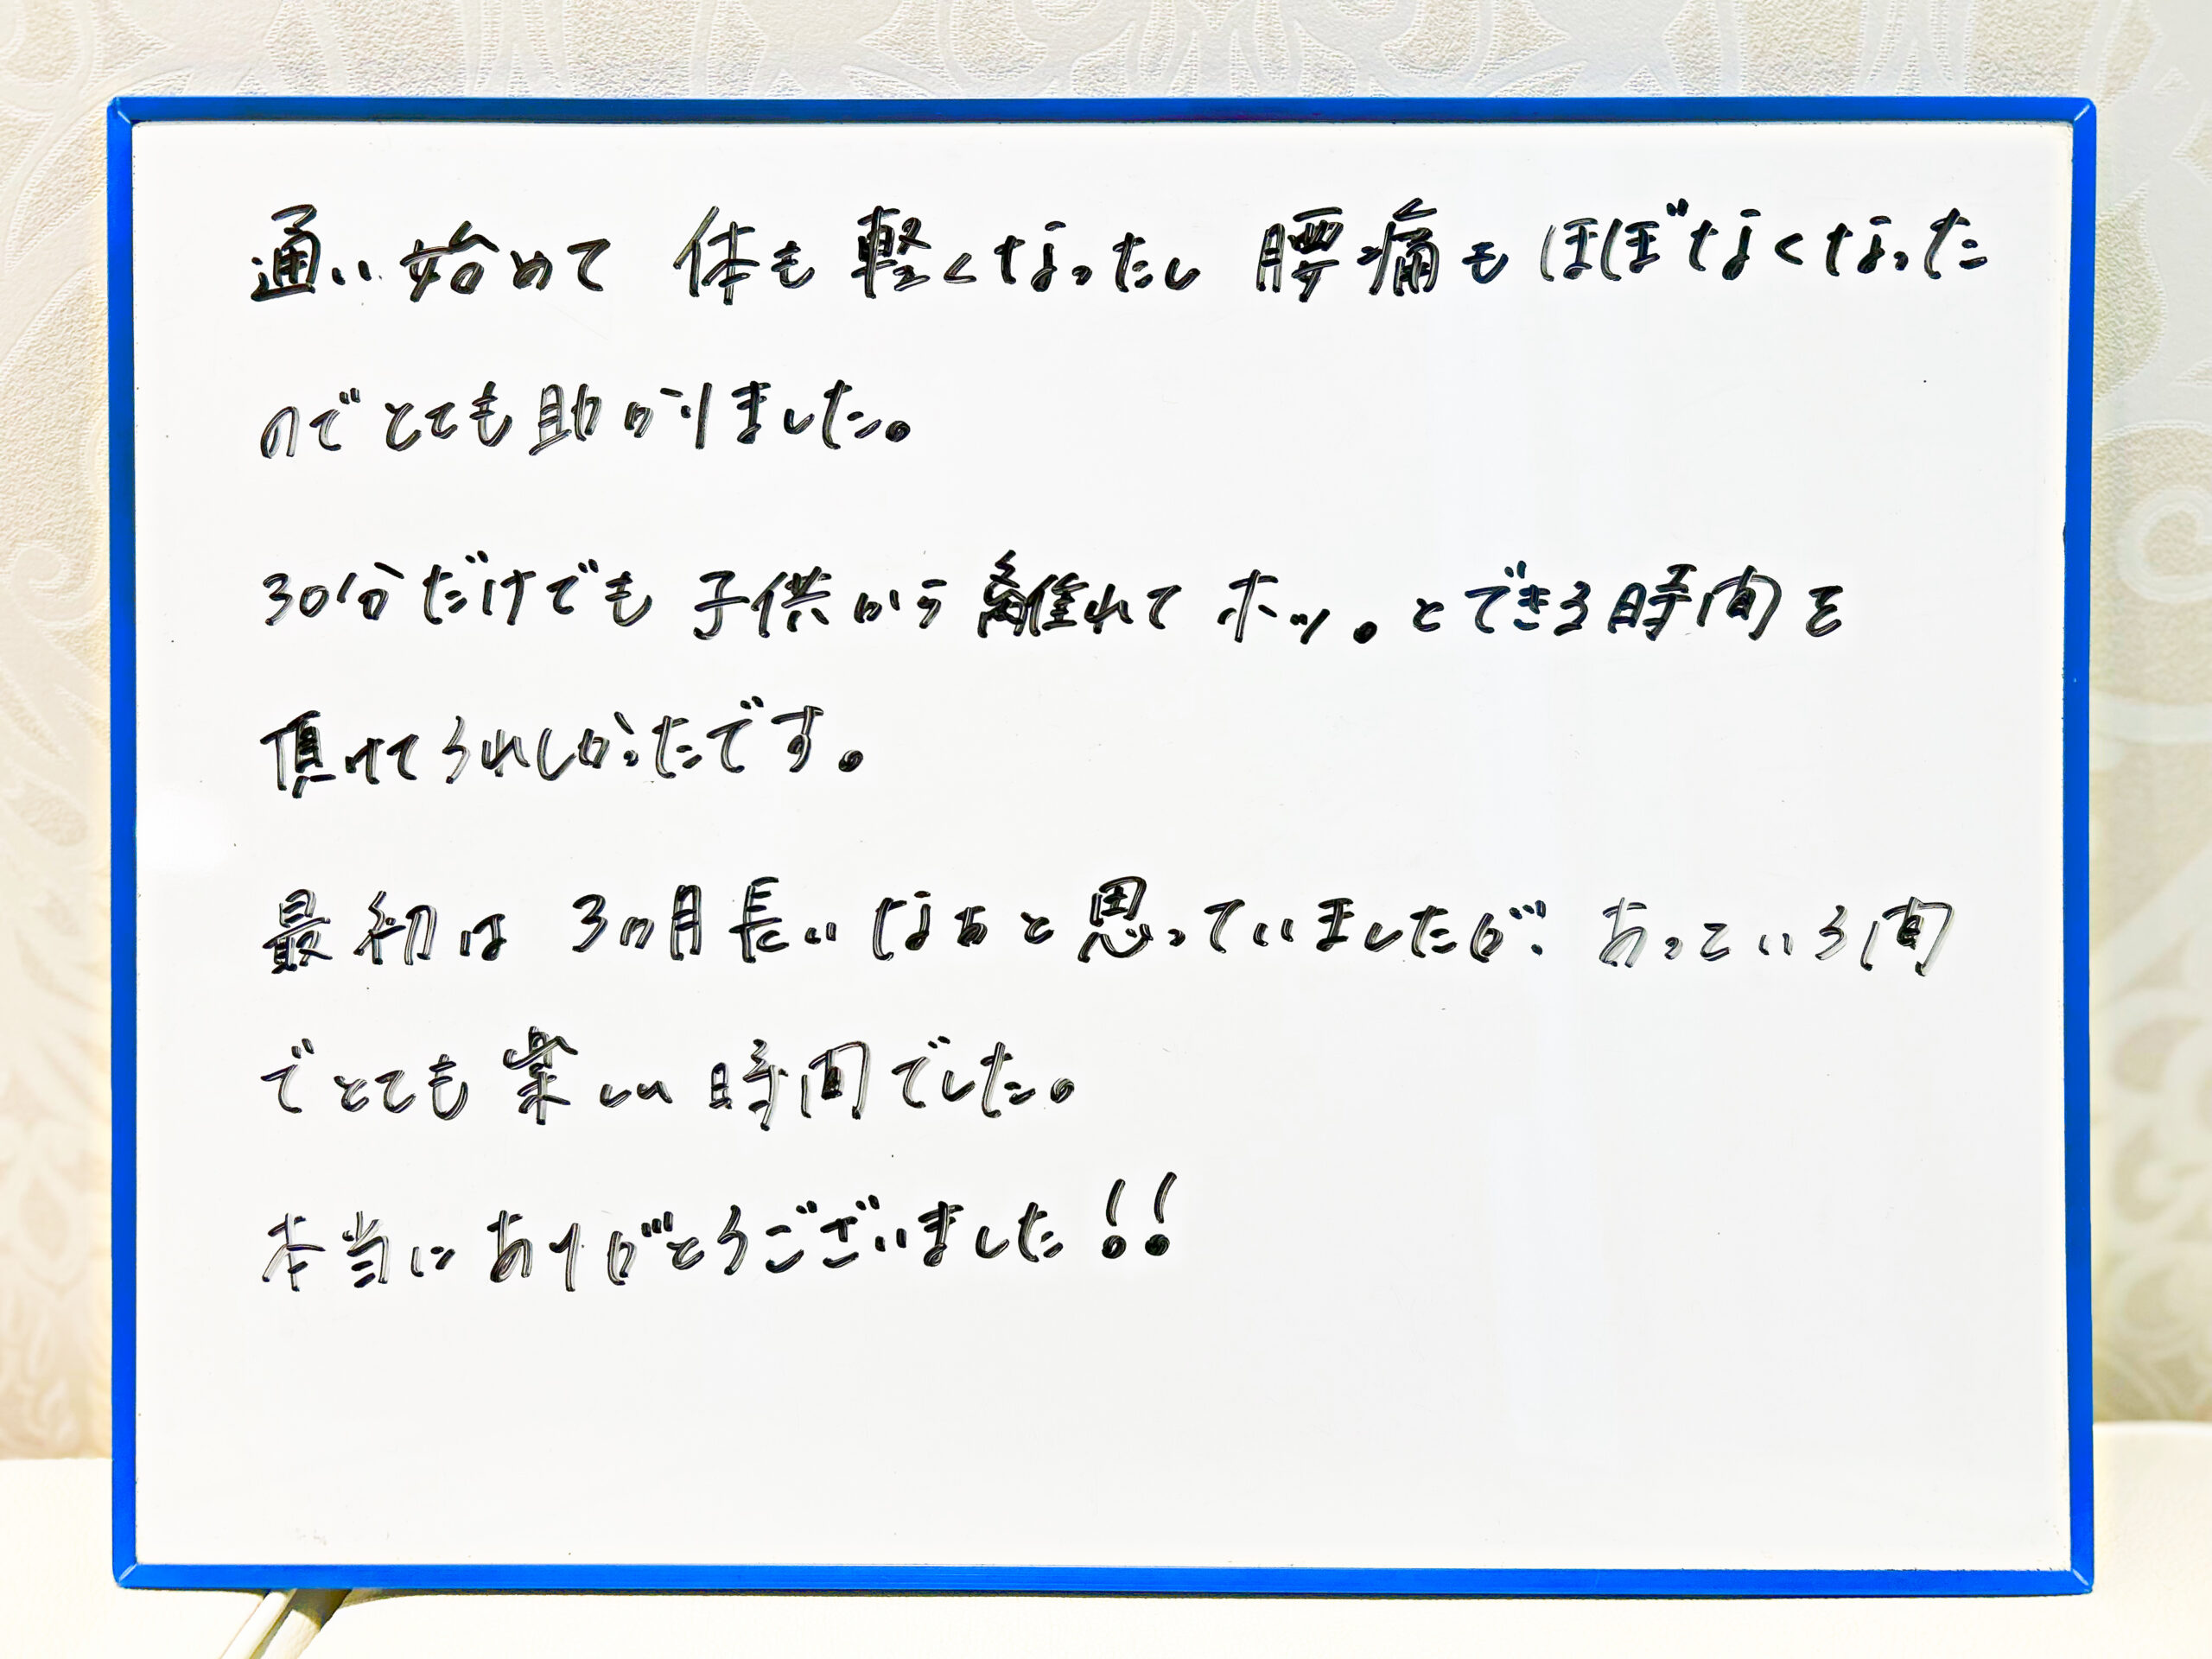 通い始めて 体も軽くなったし 腰痛もほぼなくなった
のでとても助かりました。
30分だけでも 子供から離れて ホッ。とできる時間を
頂けてうれしかったです。
最初は 3ヵ月長いなぁと思っていましたが、あっという間
でとても楽しい時間でした。
本当にありがとうございました!!